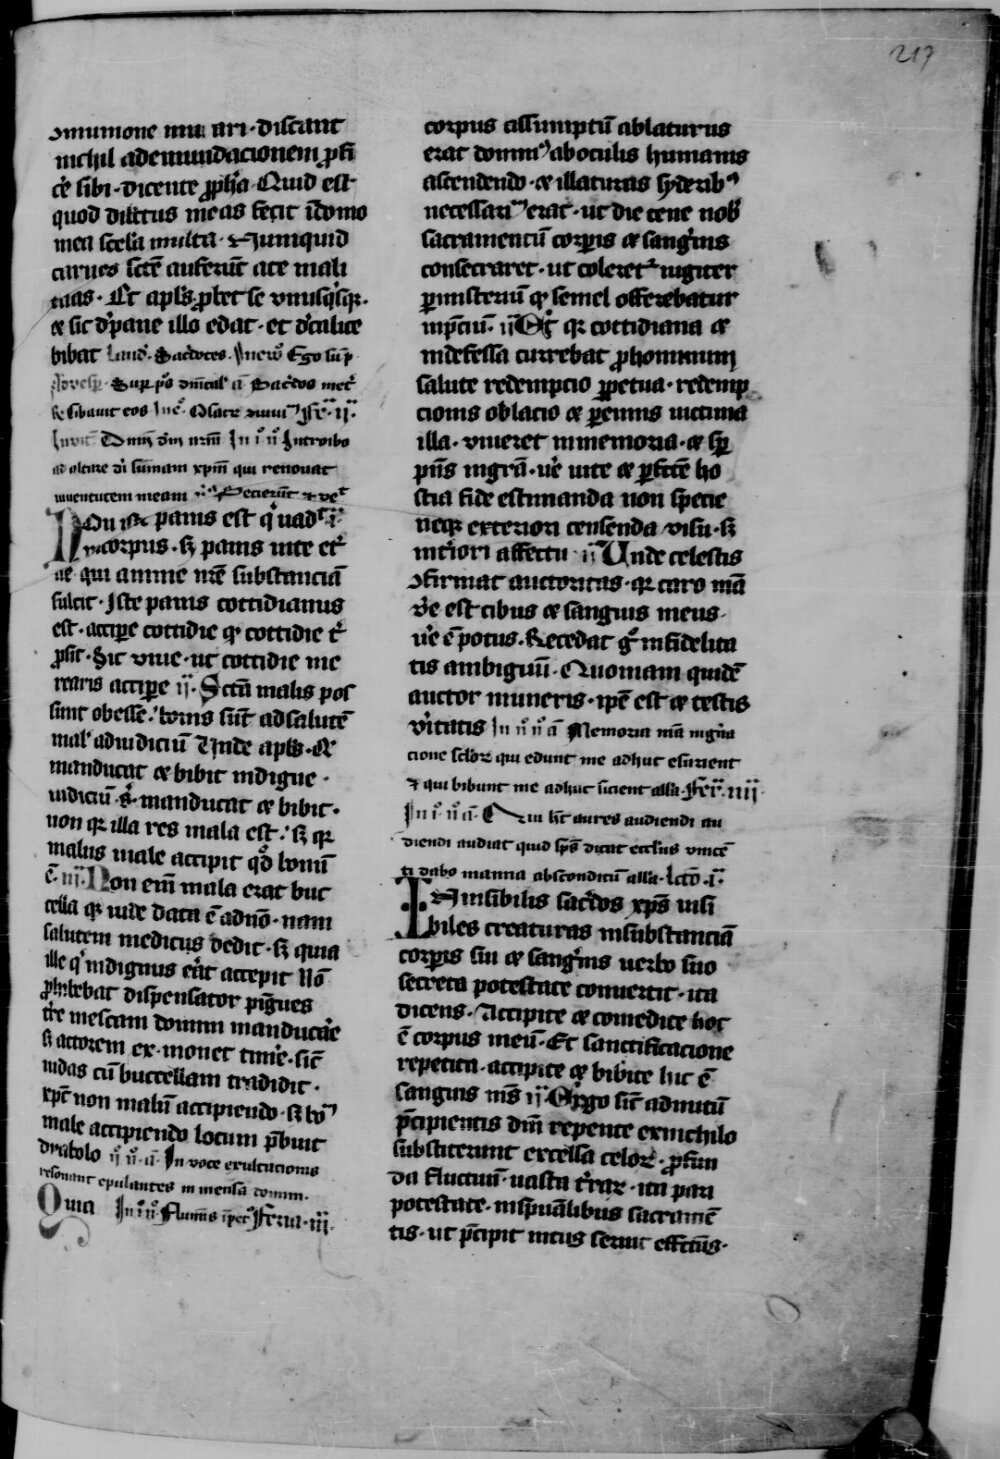 217
ↄmunione mu ari · discant
nichil ademundacionem ꝓfi
cͤe sibi · dicente ꝓph̄a · Quid est
quod dilectus meus fecit ī domo
mea scela multa · Numquid
carnes sctē auferūt ate mali
cias · Et apl̄s ꝓbet se vnusqͥsqꝫ ·
⁊ sic d̓ pane illo edat · et d̓ calice
bibat laud̓ · Sac̓dotes · Ego sū p
Sup · Sac̓dos
⁊ sibauit eos Fe · ii ·
Inuit̄ In iͦ nͦ Introibo
ad altare di sumam xp̄m qui renouat
iuuentutem meam Fecerūt
Non iste panis est qͥ uad it
incorpus · sꝫ panis uite et͛
ne · qui anime nr̄e substanciā
fulcit · Iste panis cottidianus
est · accipe cottidie qꝫ cottidie t̓
ꝓsit · Sic viue · ut cottidie me
rearis accipe ii · Sctā malis pos
sunt obesse · bonis sūt ad salutē
mal̓ adiudiciū Unde apl̄s · Q̄
manducat ⁊ bibit indigne ·
iudiciū s̓ · manducat ⁊ bibit ·
non qꝛ illa res mala est · sꝫ qꝛ
malus male accipit qd̓ bonū
ē · iii · Non em̄ mala erat buc
cella qꝫ iude data ē adn̄o · nam
salutem medicus dedit · sꝫ quia
ille qͥ indignus er̄at accepit Nō
ꝓhibebat dispensator pīgues
tr̄e mescam domini manducar̄e
sꝫ actorem ex · monet timͤe · sic̄
iudas cū buccellam tradidit ·
xp̄c non malū accipiendo · sꝫ bo᷒
male accipiendo locum p̄buit
dyabolo ii nͦ a · In voce exultacionis
resonant epulantes in mensa domini ·
Quia In iͦ nͦ Flumīs Feria · iii ·
corpus assumptū ablaturus
erat domin᷒ aboculis humanis
ascendendo · ⁊ illaturus syderib᷒
necessari᷒ erat · ut die cene nob̓
sacramentū corpis ⁊ sang̓inis
consecraret · ut coleret᷑ iugiter
p̱ misteriū qꝫ semel offerebatur
inp̄ciū · ii Et qꝛ cottidiana ⁊
indefessa currebat ꝓ hominum
salute redempcio ꝑpetua · redemp
cionis oblacio ⁊ ꝑennis uictima
illa · viueret in memoria · ⁊ sp̄
p̄ns ingr̄a · ue̓ uite ⁊ ꝑfcē ho
stia fide estimanda non specie
neqꝫ exteriori censenda visu · sꝫ
int̓iori affectu · ii Unde celestis
ↄfirmat auctoritas · qꝛ caro mā
ve̓ est cibus ⁊ sanguis meus ·
ue̓ ē potus · Recedat gͦ infidelita
tis ambiguū · Quoniam quidē
auctor muneris · ip̄e est ⁊ testis
vi̓tatis In iiͦ nͦ a Memoria mā ingn̄a
cione sclo̓ꝝ qui edunt me adhuc esurient
⁊ qui bibunt me adhuc sicient all̓a · Fer̄ · iiii ·
In iͦ nͦ a · Qui ht̄ aures audiendi au
diendi audiat quid sp̄s dicat eccl̄iis vincē
ti dabo manna absconditū all̓a · lctō · i ·
Inuisibilis sac̓dos xp̄s uisi
biles creaturas insubstanciā
corpis sui ⁊ sang̓inis uerbo suo
secreta potestate conuertit · ita
dicens · Accipite ⁊ comedite hoc
ē corpus meū · Et sanctificacione
repetita · accipite ⁊ bibite hic ē
sanguis m̄s ii Ergo sic̄ ad nutū
p̄cipientis dn̄i repente exnichilo
substiterunt excelsa celoꝝ · ꝓfun
da fluctuū · uasta t̓raꝝ · ita pari
potestate · inspūalibus sacramē
tis · ut p̄cipit intus seruit effectus ·